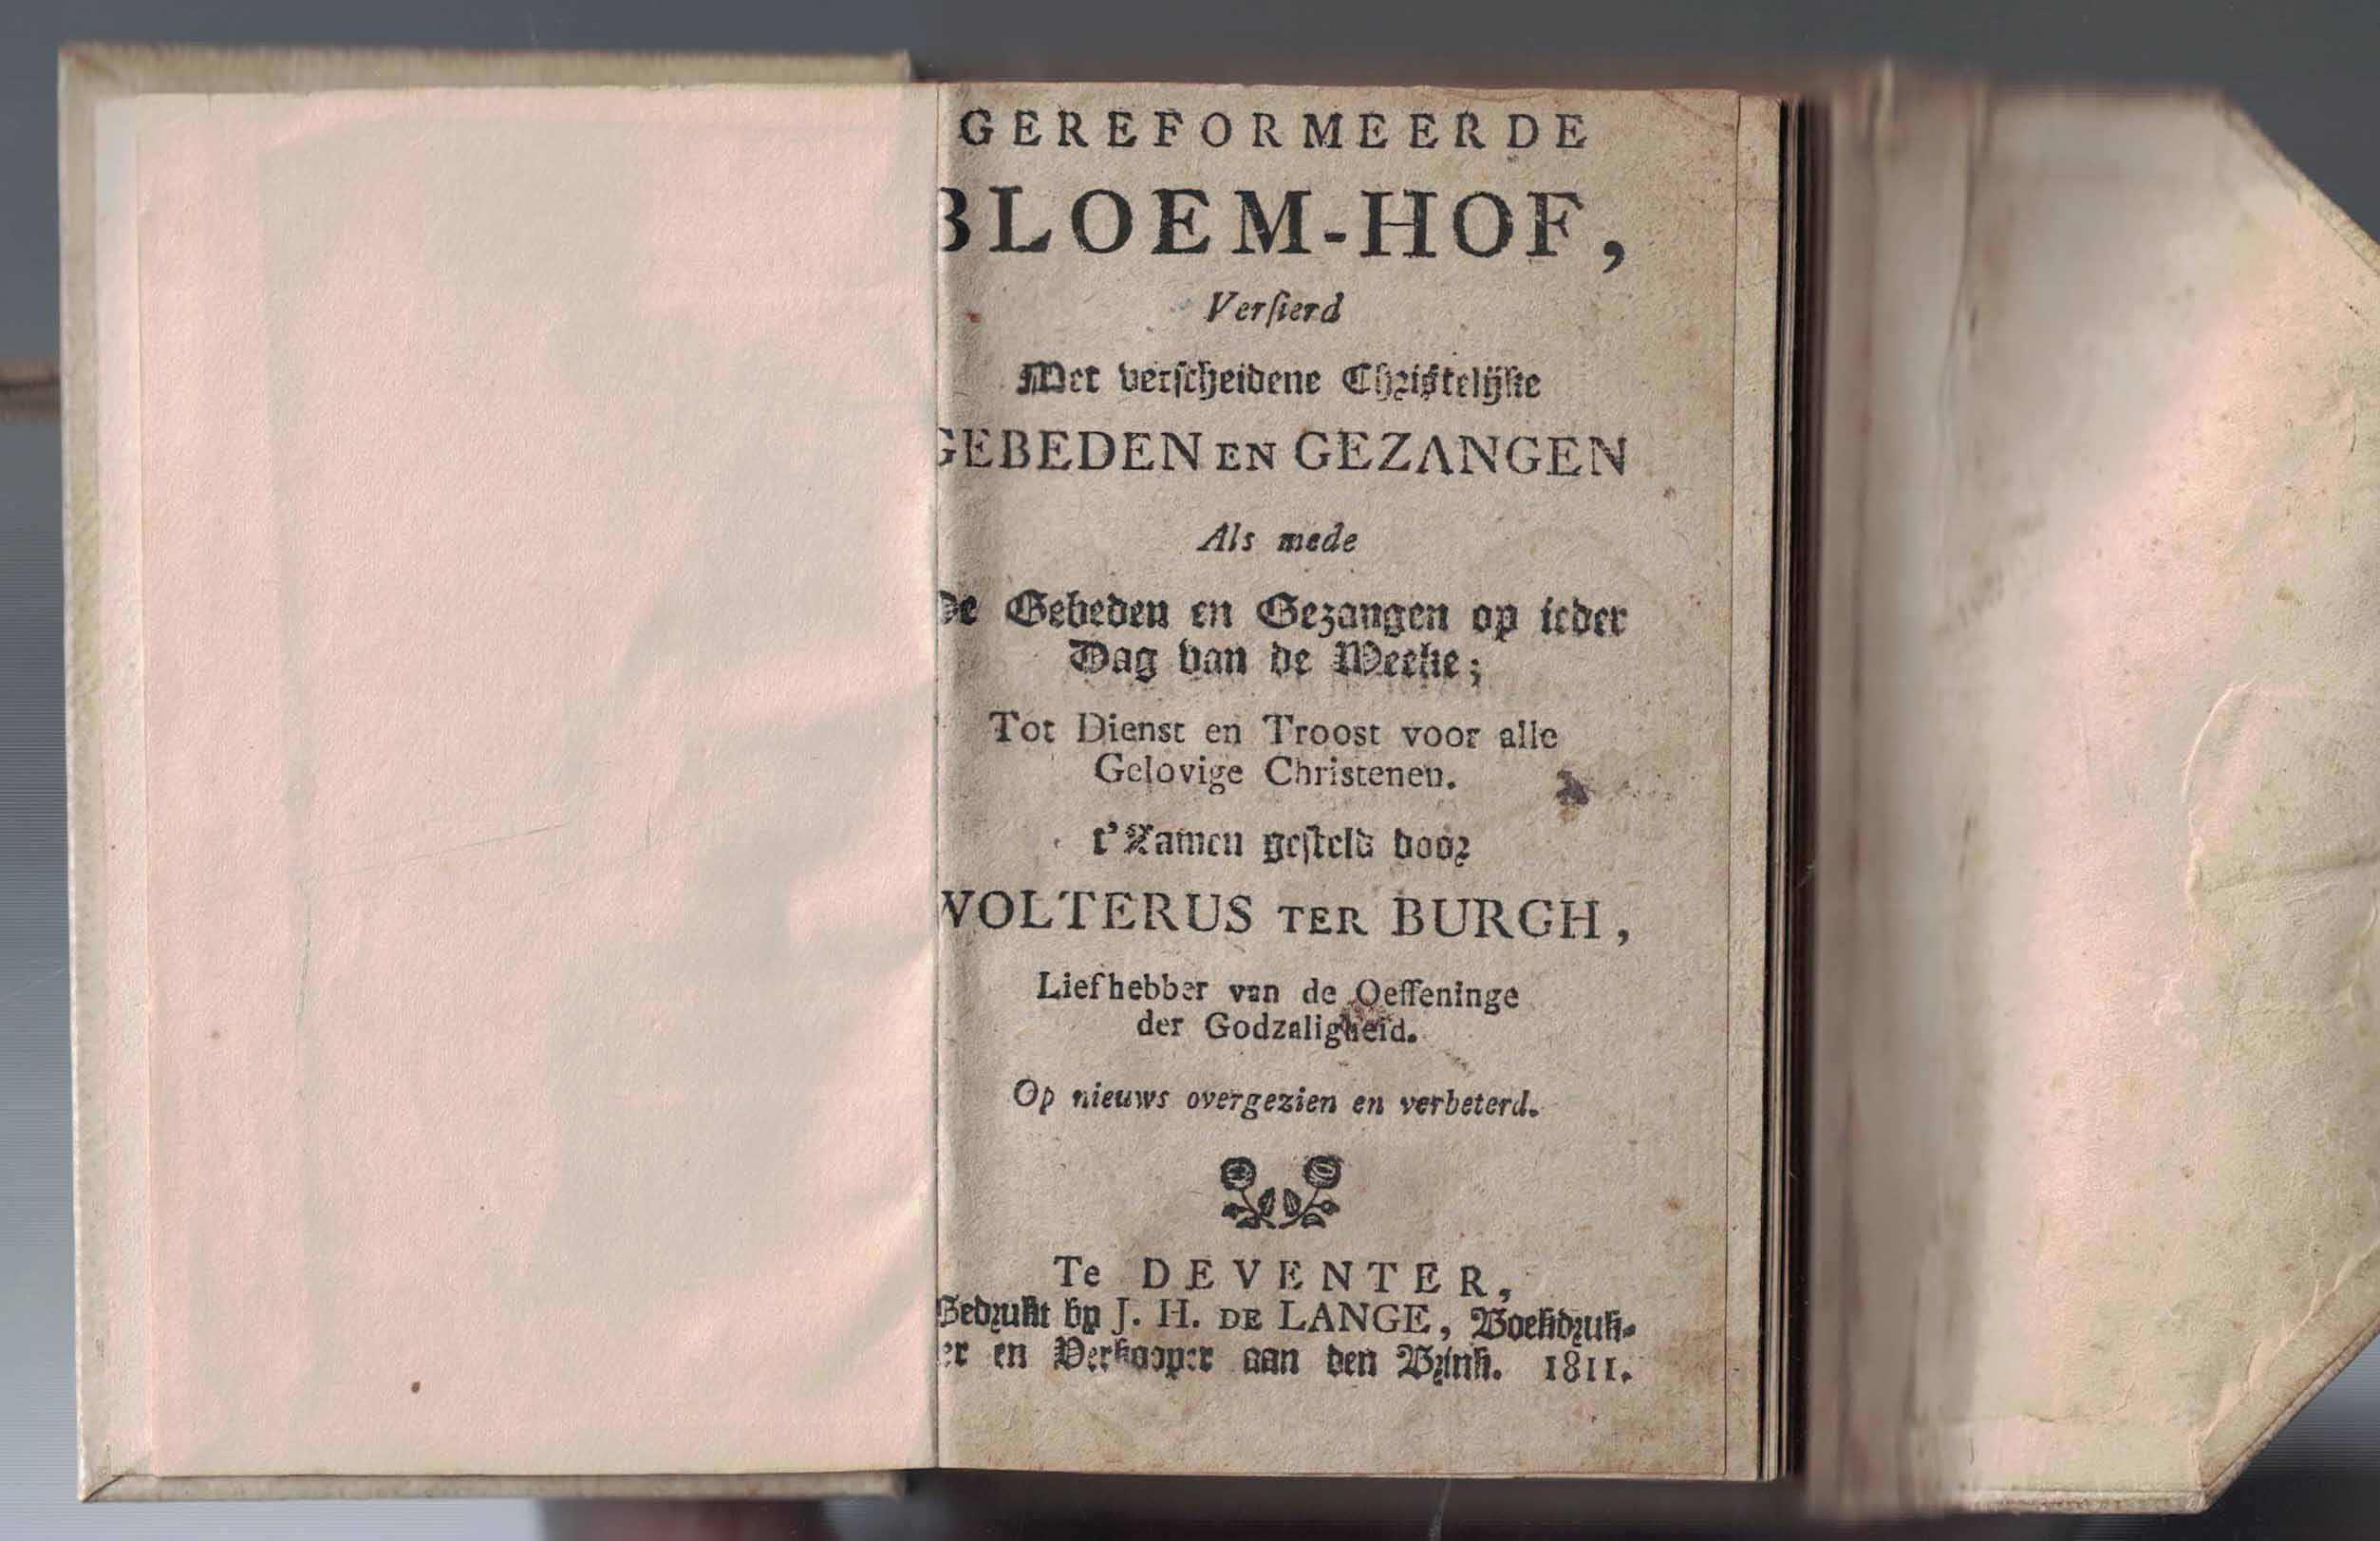 GEREFORMEERDE
BLOEM-HOF,
Verſierd
Met verſcheidene Christelijke
GEBEDEN EN GEZANGEN
Als mede
De Gebeden en Gezangen op ieder
Dag van de Weeke;
Tot Dienst en Troost voor alle
Gelovige Christenen.
t'Zamen geſteld door
WOLTERUS TER BURGH,
Liefhebber van de Oeffeninge
der Godzaligheid.
Op nieuws overgezien en verbeterd.
Te DEVENTER,
Gedrukt by J. H. DE LANGE, Boekdruk-
er en Verkooper aan den Brink. 1811.